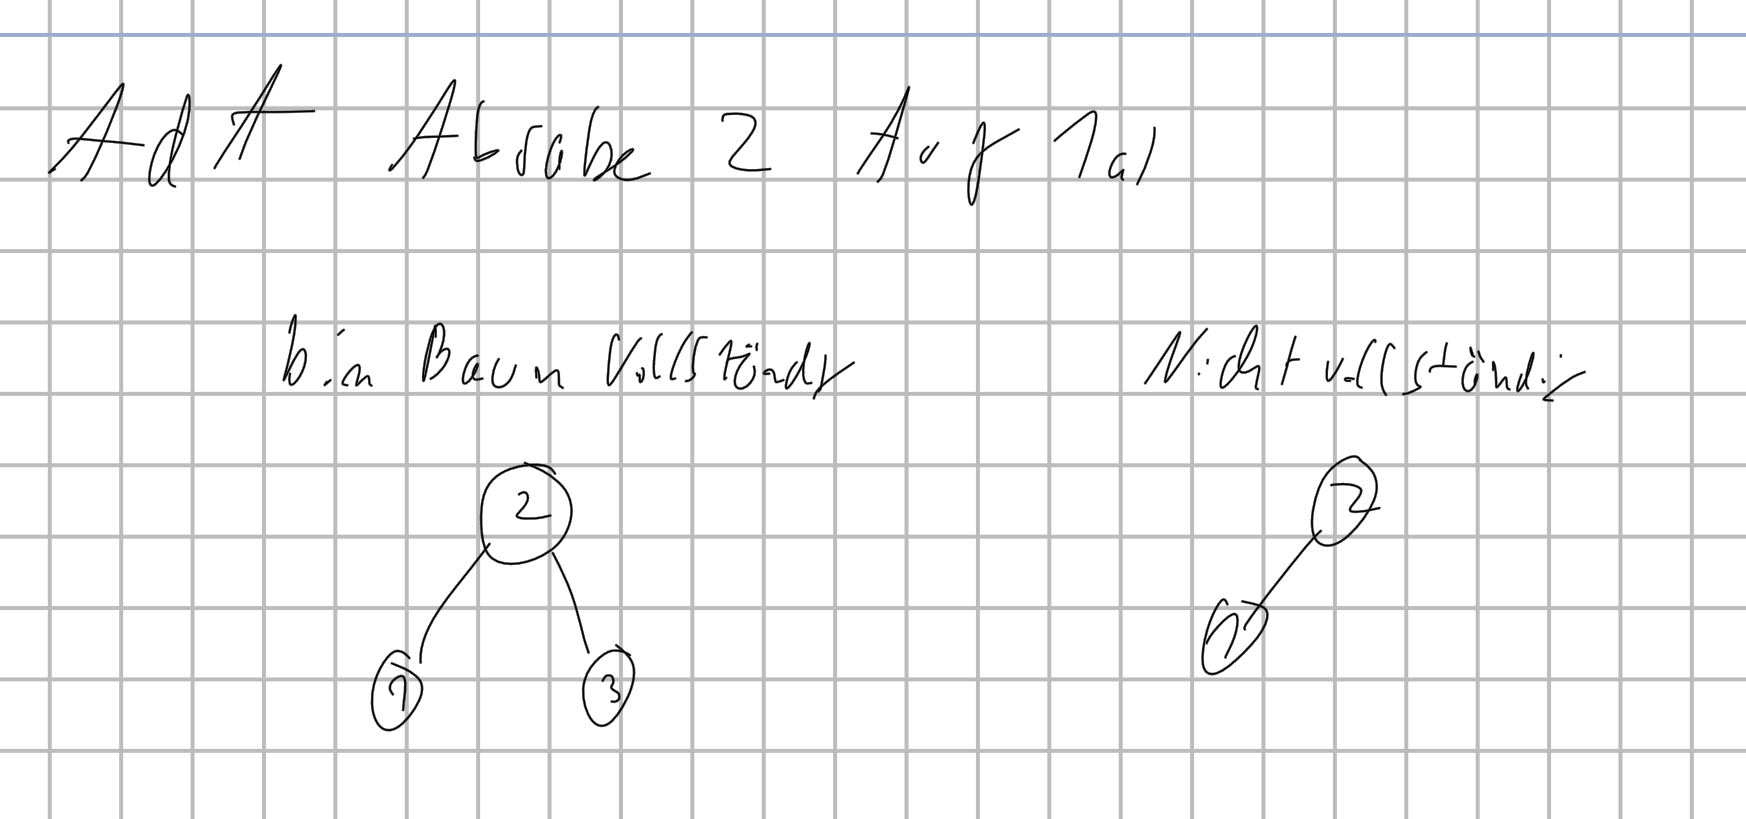 AdA Abgabe 2 Auf 1a)
bin Baum Vollständig Nicht vollständig
2 2
1 3 1